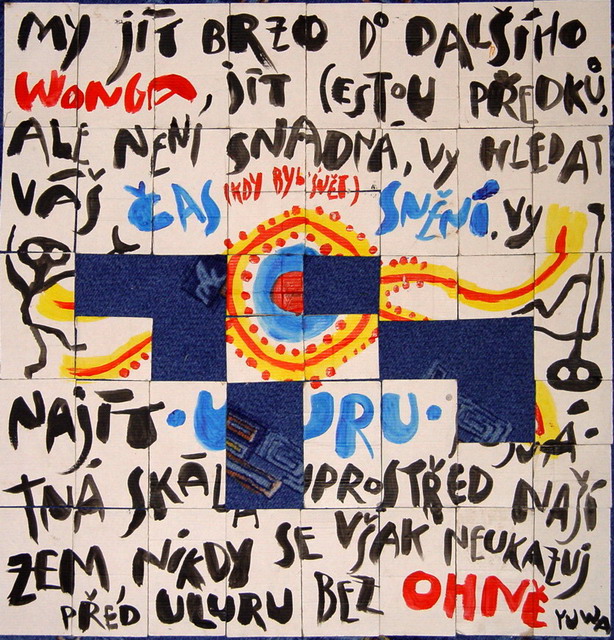 MY JÍT BRZO DO DALŠÍHO
WONGA, JÍT CESTOU PŘEDKŮ,
ALE NENÍ SNADNÁ, VY HLEDAT
VÁŠ ČAS (KDY BYL SVĚT) SNĚNÍ, VY
NAJÍT • U URU •
TNÁ SKÁL UPROSTŘED NAŠÍ
ZEM NIKDY SE VŠAK NEUKAZUJ
PŘED ULURU BEZ OHNĚ YUWA